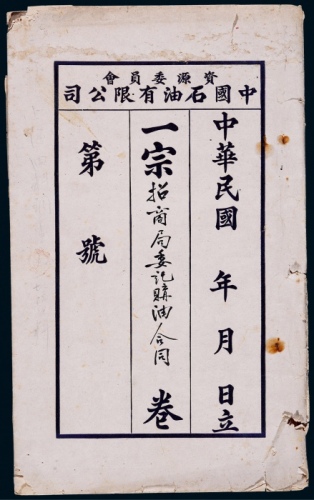 資源委員會
中國石油有限公司
中華民國　年　月　日立
一宗招商局委託購油合同　卷
第　號